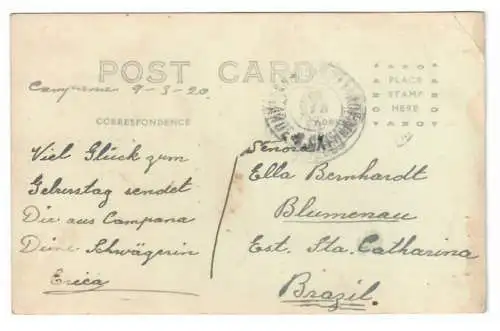 POST CARD
Campana 9-3-20.
PLACE
STAMP
HERE
AZO
CORRESPONDENCE
Viel Glück zum
Geburstag sendet
Dir aus Campana
Deine Schwägerin
Erica
Señora
Ella Bernhardt
Blumenau
Est. Sta. Catharina
Brazil.